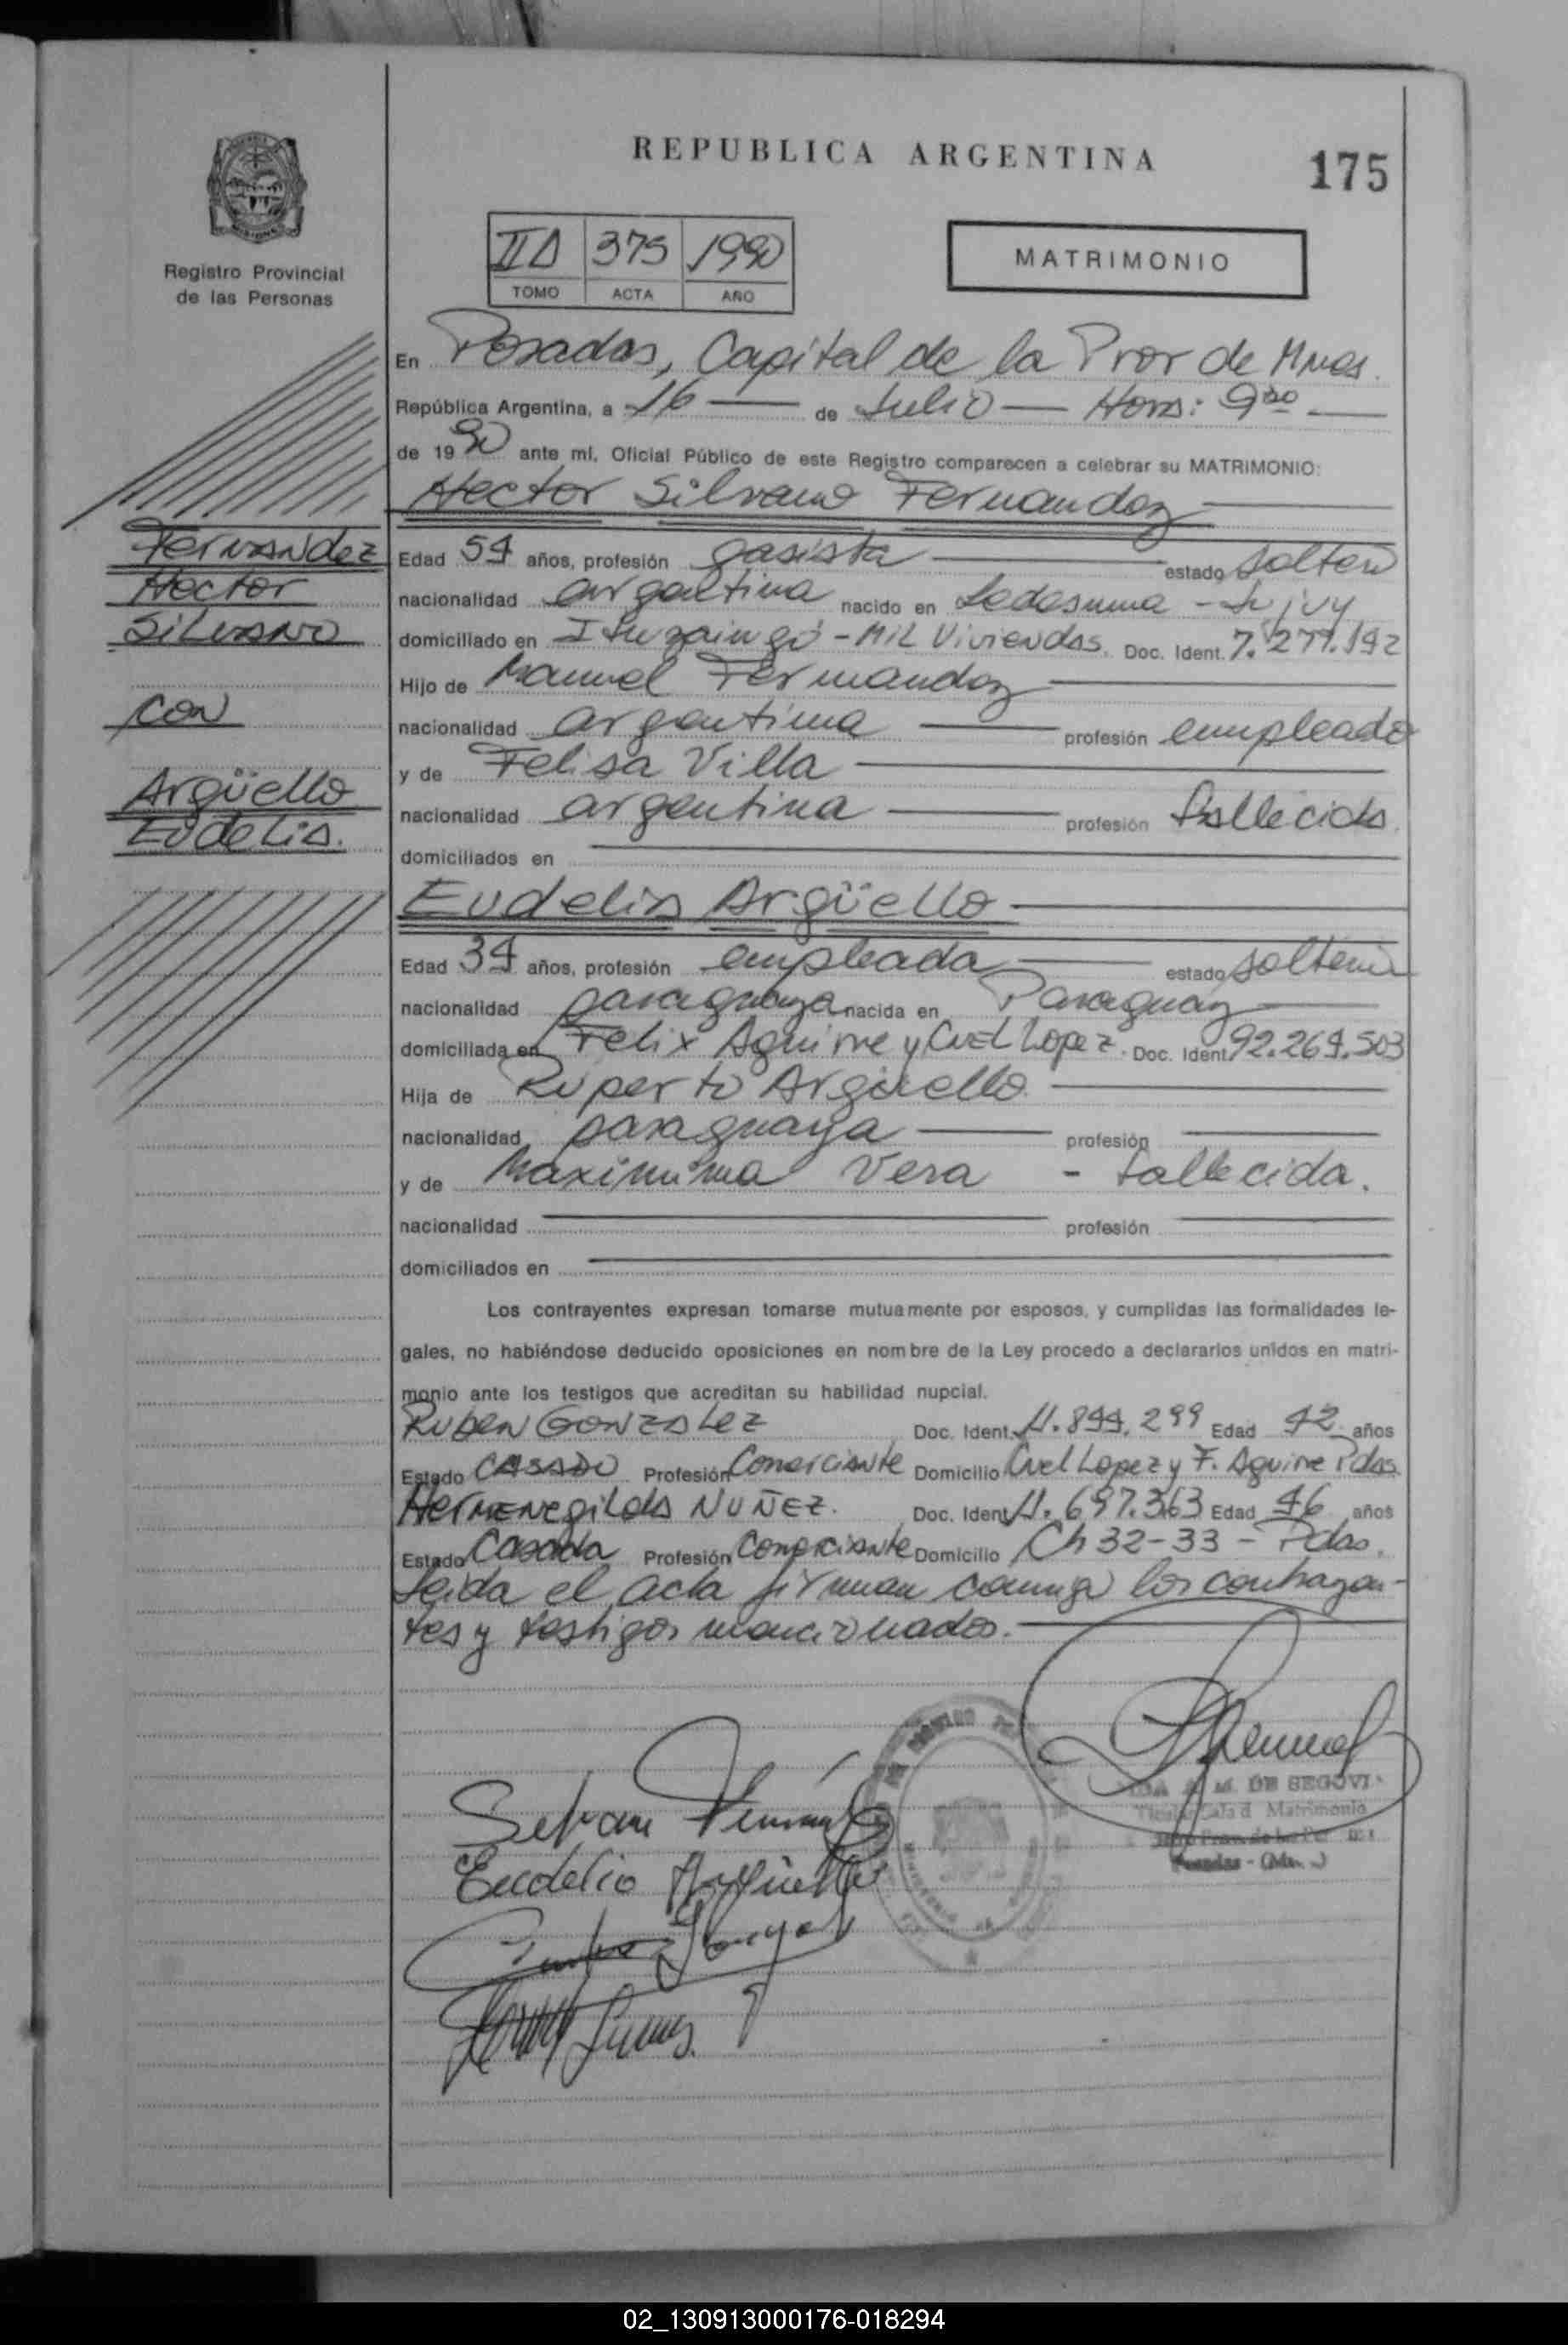 REPUBLICA ARGENTINA
175
Registro Provincial
de las Personas
II A 375 1990
TOMO ACTA AÑO
MATRIMONIO
En Posadas, Capital de la Prov de Mnes.
República Argentina, a 16 de Julio Hora: 9
de 1990 ante mí, Oficial Público de este Registro comparecen a celebrar su MATRIMONIO:
Hector Silvano Fernandez
Fernandez
Hector
Silvano
con
Argüello
Eudelia.
Edad 54 años, profesión gasista estado soltero
nacionalidad argentina nacido en Ledesma - Jujuy
domiciliado en Ituzaingó - Mil Viviendas. Doc. Ident. 7.277.192
Hijo de Manuel Fernandez
nacionalidad argentina profesión empleado
y de Felisa Villa
nacionalidad argentina profesión fallecida.
domiciliados en
Eudelia Argüello
Edad 34 años, profesión empleada estado soltera
nacionalidad paraguaya nacida en Paraguay
domiciliada en Felix Aguirre y Cnel Lopez. Doc. Ident. 92.264.503
Hija de Ruperto Argüello
nacionalidad paraguaya profesión
y de Maximina Vera - fallecida.
nacionalidad profesión
domiciliados en
Los contrayentes expresan tomarse mutuamente por esposos, y cumplidas las formalidades le-
gales, no habiéndose deducido oposiciones en nombre de la Ley procedo a declararlos unidos en matri-
monio ante los testigos que acreditan su habilidad nupcial.
Ruben Gonzalez Doc. Ident. 11.844.299 Edad 42 años
Estado Casado Profesión Comerciante Domicilio Cnel Lopez y F. Aguirre Pdas.
Hermenegilda Nuñez. Doc. Ident. 11.697.363 Edad 46 años
Estado Casada Profesión Comerciante Domicilio Ch 32-33 - Pdas.
Leida el acta firman conmigo los contrayen-
tes y testigos mencionados.
DE SEGOVI
Matrimonio
Posadas - (Mnes.)
Eudelia Argüello
02_130913000176-018294